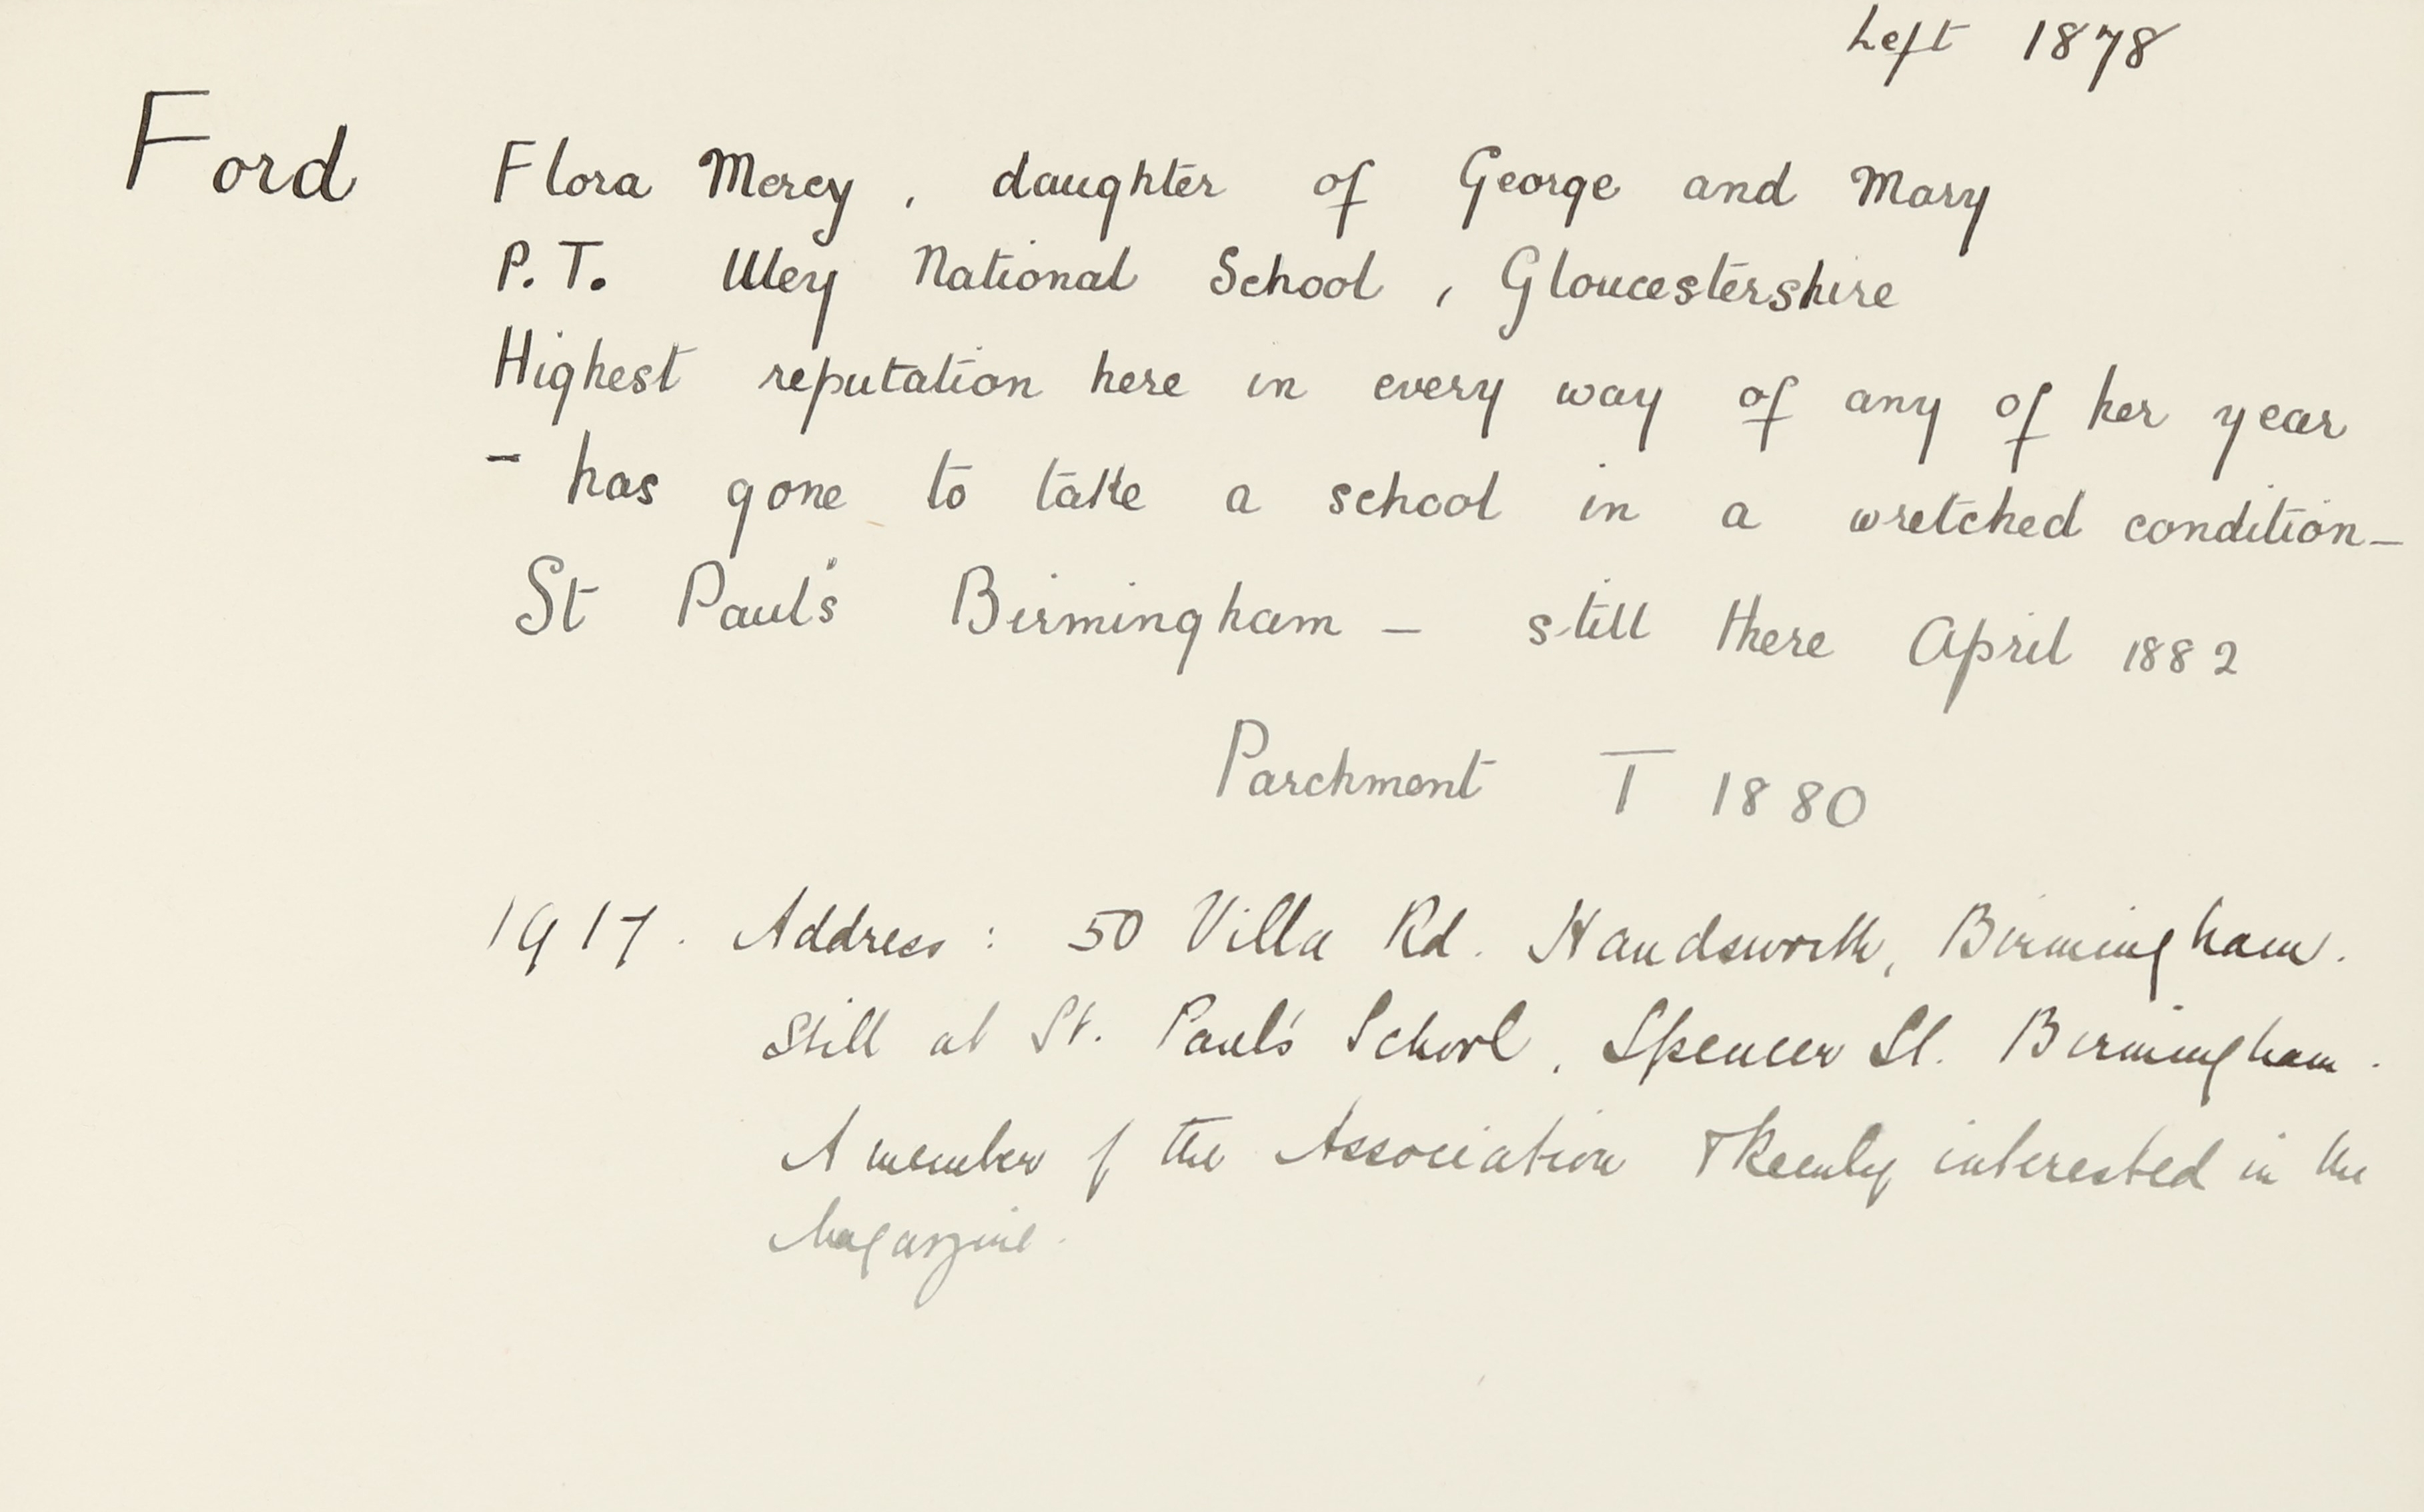 Left 1878
Ford Flora Mercy, daughter of George and Mary
P.T. Uley National School, Gloucestershire
Highest reputation here in every way of any of her year
- has gone to take a school in a wretched condition -
St Paul's Birmingham - still there April 1882
Parchment T 1880
1917. Address: 50 Villa Rd. Handsworth, Birmingham.
Still at St. Paul's School, Spencer St. Birmingham.
A member of the Association & keenly interested in the
Magazine.